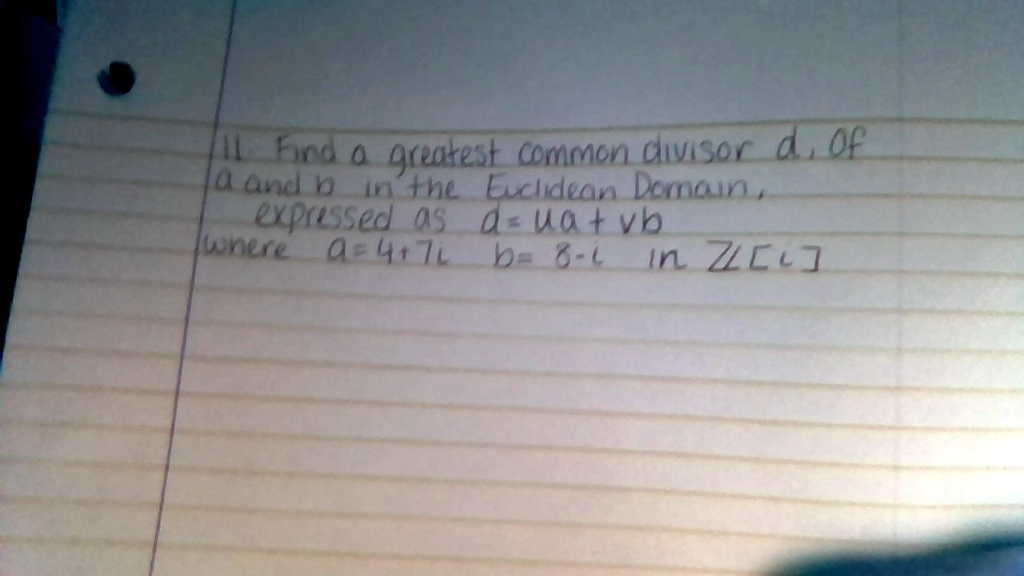 11. Find a greatest common divisor d, of
a and b in the Euclidean Domain,
expressed as d = ua + vb
where a = 4+7i b = 8-i in ℤ[i]